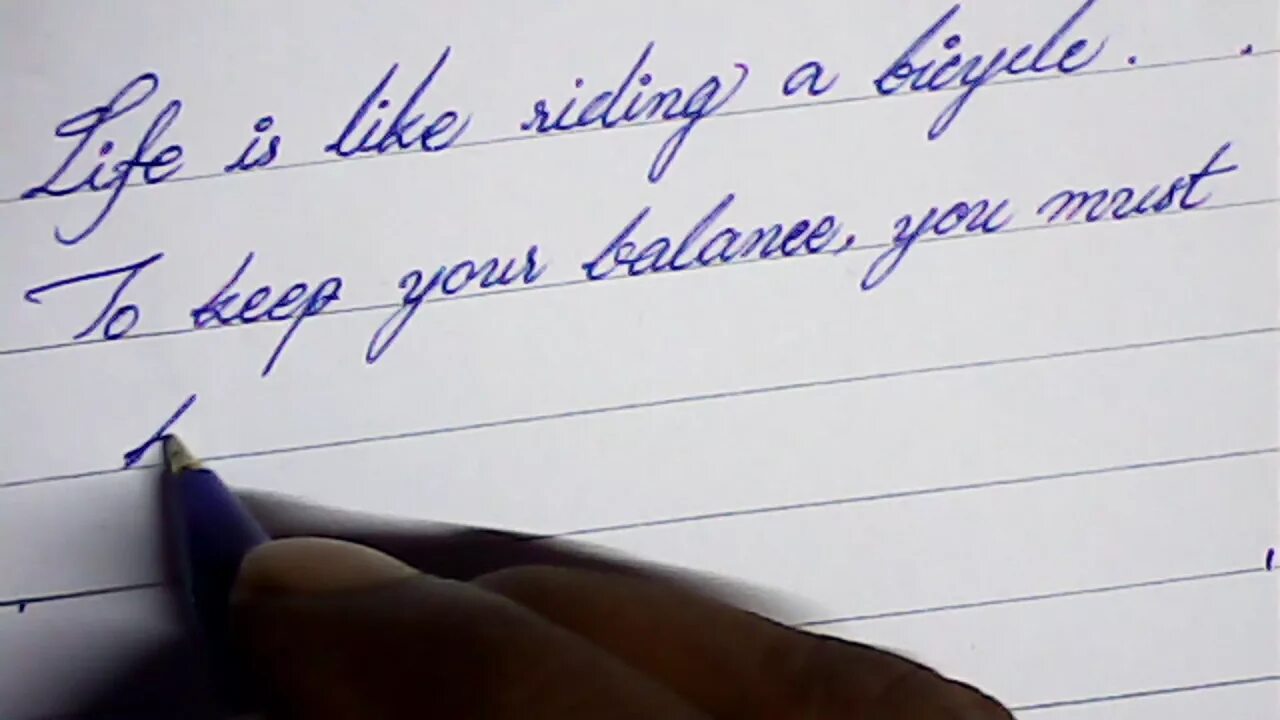 Life is like riding a bicycle.
To keep your balance, you must